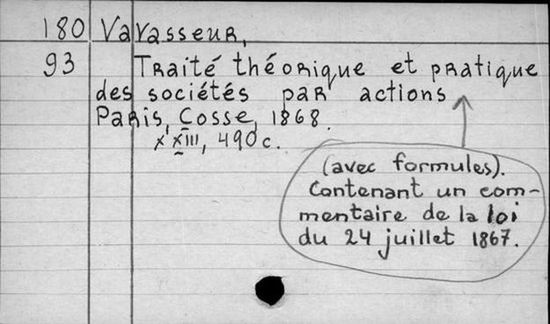 180 Vavasseur,
93 Traité théorique et pratique
des sociétés par actions
Paris, Cosse, 1868.
XXIII, 490 c.
(avec formules).
Contenant un com-
mentaire de la loi
du 24 juillet 1867.